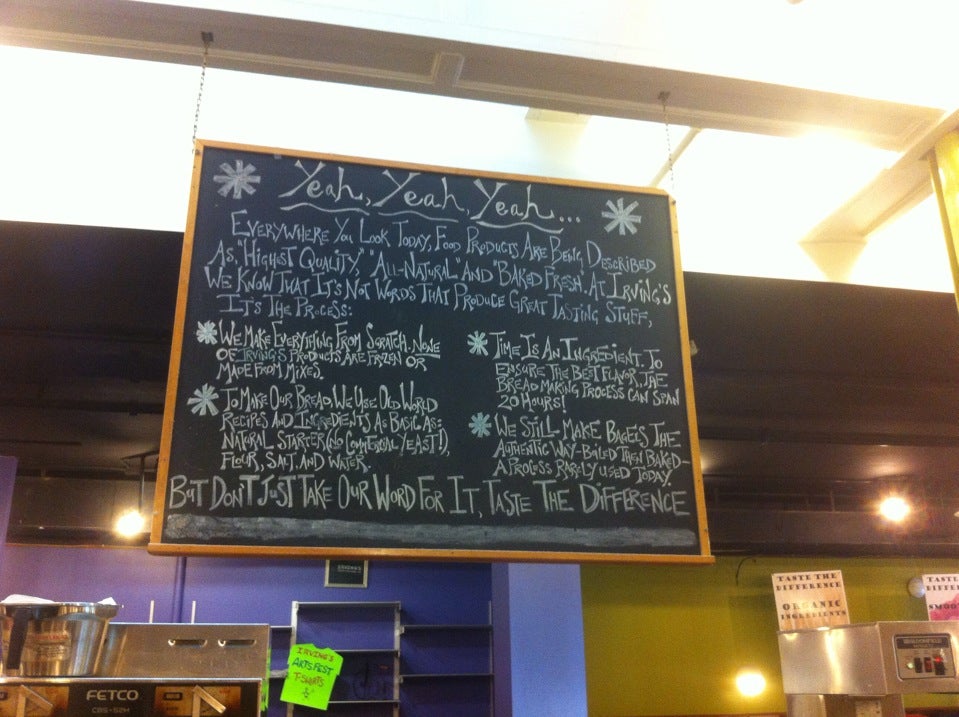 Yeah, Yeah, Yeah...
EVERYWHERE YOU LOOK TODAY, FOOD PRODUCTS ARE BEING DESCRIBED
AS, "HIGHEST QUALITY," "ALL-NATURAL" AND "BAKED FRESH". AT IRVING'S
WE KNOW THAT IT'S NOT WORDS THAT PRODUCE GREAT TASTING STUFF,
IT'S THE PROCESS:
WE MAKE EVERYTHING FROM SCRATCH. NONE
OF IRVING'S PRODUCTS ARE FROZEN OR
MADE FROM MIXES.
TO MAKE OUR BREAD, WE USE OLD WORLD
RECIPES AND INGREDIENTS AS BASIC AS:
NATURAL STARTER (NO COMMERCIAL YEAST!),
FLOUR, SALT, AND WATER.
TIME IS AN INGREDIENT. TO
ENSURE THE BEST FLAVOR, THE
BREAD MAKING PROCESS CAN SPAN
20 HOURS!
WE STILL MAKE BAGELS THE
AUTHENTIC WAY-BOILED THEN BAKED-
A PROCESS RARELY USED TODAY.
BUT DON'T JUST TAKE OUR WORD FOR IT, TASTE THE DIFFERENCE
IRVING'S
IRVING'S
ARTSFEST
T-SHIRTS
FETCO
CBS-52H
TASTE THE
DIFFERENCE
ORGANIC
INGREDIENTS
TASTE THE
DIFFEREN
SMOO
BLOOMFIELD